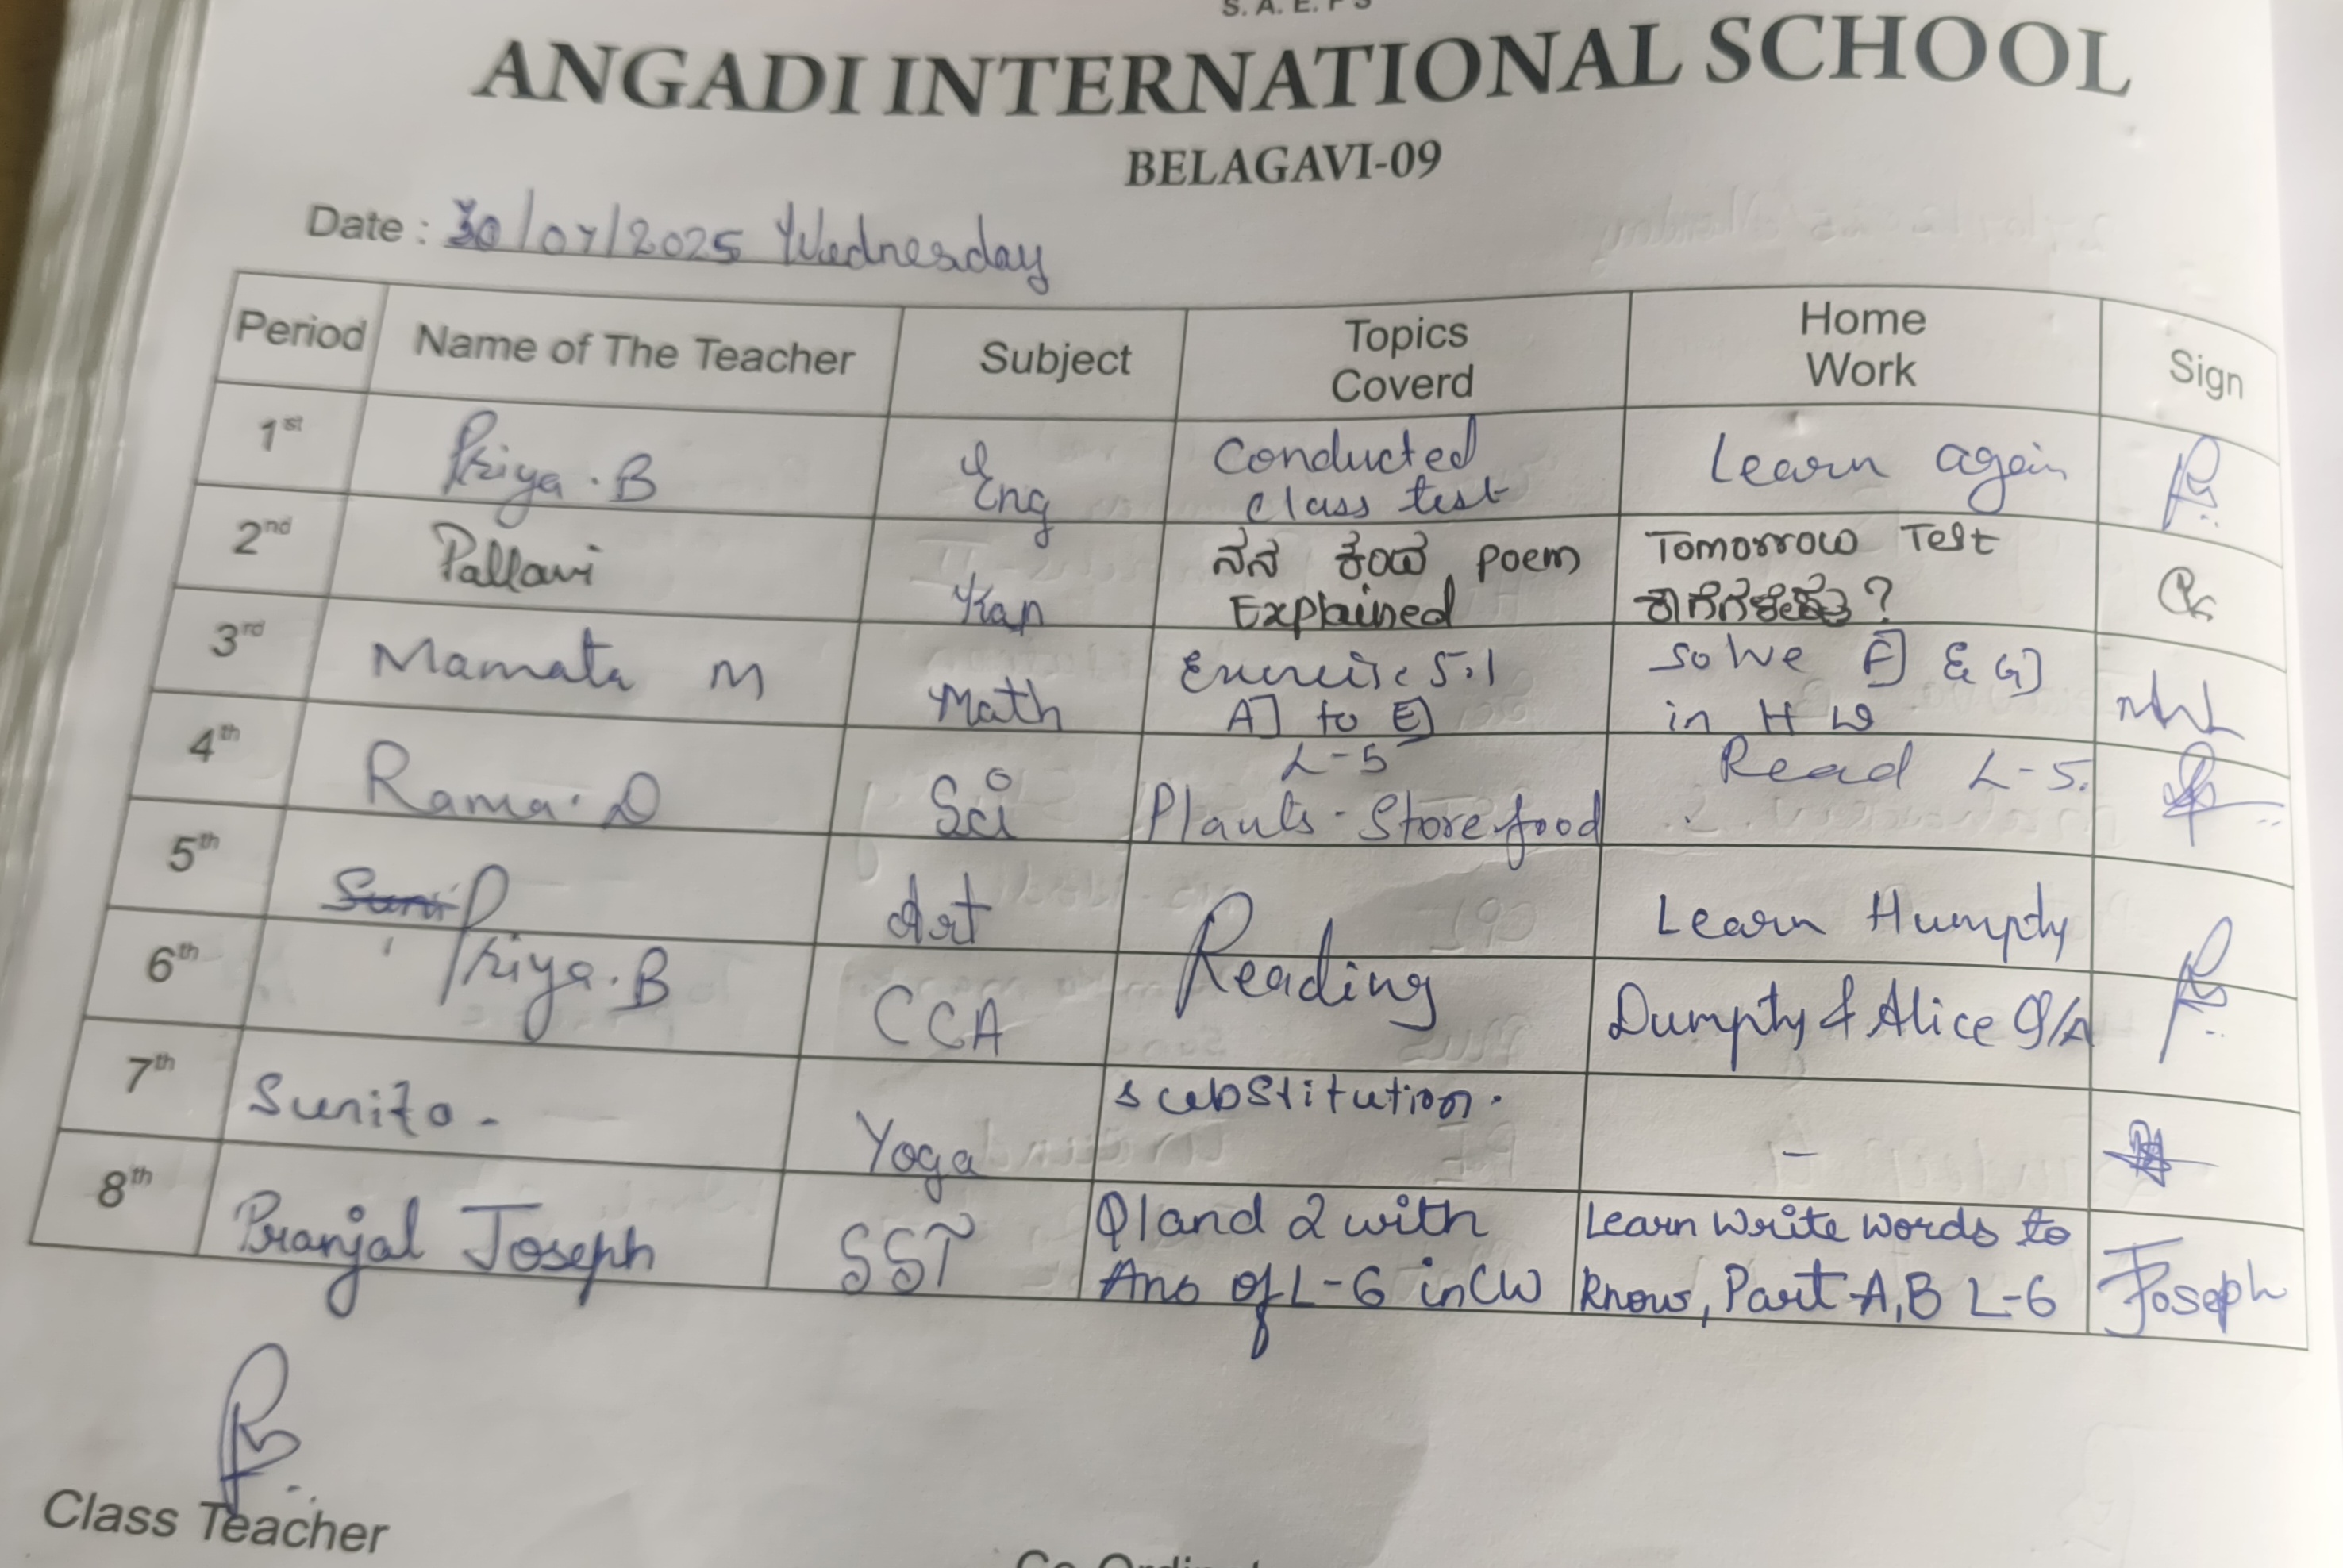 S. A. E. F S
ANGADI INTERNATIONAL SCHOOL
BELAGAVI-09
Date : 30/07/2025 Wednesday
Period Name of The Teacher Subject Topics Coverd Home Work Sign
1st Priya . B Eng Conducted class test Learn again
2nd Pallavi Kan ನನ ಕಂದ poem Explained Tomorrow Test
3rd Mamata M Math Exercise 5.1 A] to E] solve F] & G] in H W
4th Rama . D Sci L-5 Plants - Store food Read L-5.
5th Art
6th Priya . B CCA Reading Learn Humpty Dumpty & Alice Q/A
7th Sunita - Yoga substitution . -
8th Pranjal Joseph SST Q1 and 2 with Ans of L-6 in CW Learn write words to know, Part-A,B L-6 Joseph
Class Teacher